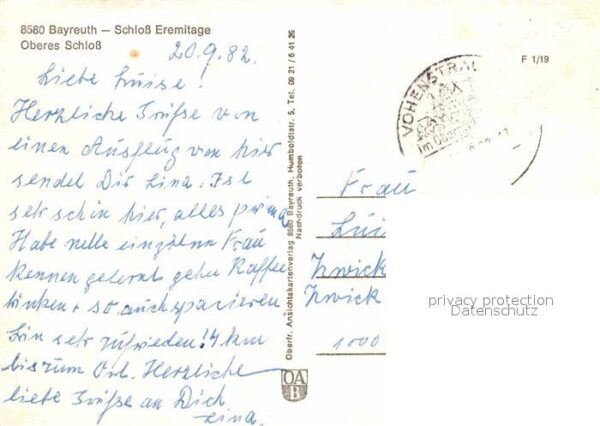 8580 Bayreuth – Schloß Eremitage
Oberes Schloß
20.9.82.
Liebe Luise!
Herzliche Grüße von
einen Ausflug von hier
sendet Dir Lina. Ist
sehr schön hier, alles prima
Habe nette einzelne Frau
kennen gelernt gehn Kaffee
trinken + so, auch spazieren
bin sehr zufrieden! 4 km
bis zum Ort. Herzliche
liebe Grüße an Dich
Lina.
Oberfr. Ansichtskartenverlag 8580 Bayreuth, Humboldtstr. 5, Tel. 09 21 / 6 41 26
Nachdruck verboten
OA
F 1/19
VOHENSTRAU
Im Oberpf
Frau
Lui
Zwick
Zwick
1000
privacy protection
Datenschutz